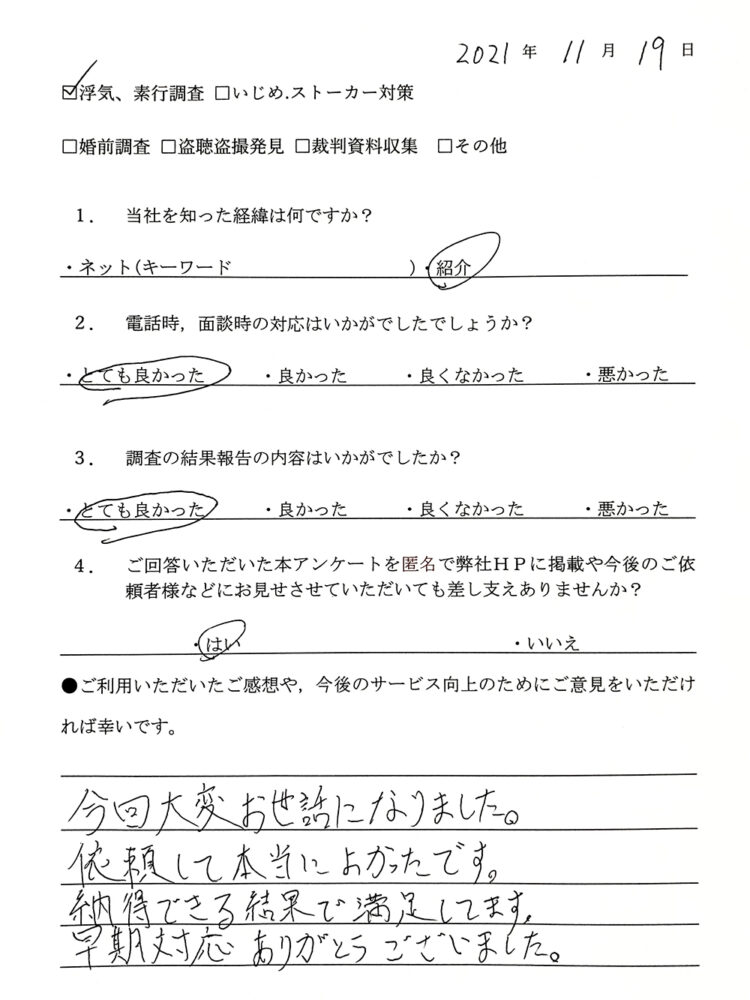 2021年 11月 19日
☑浮気、素行調査 □いじめ.ストーカー対策
□婚前調査 □盗聴盗撮発見 □裁判資料収集 □その他
1. 当社を知った経緯は何ですか?
・ネット(キーワード )・紹介
2. 電話時,面談時の対応はいかがでしたでしょうか?
・とても良かった ・良かった ・良くなかった ・悪かった
3. 調査の結果報告の内容はいかがでしたか?
・とても良かった ・良かった ・良くなかった ・悪かった
4. ご回答いただいた本アンケートを匿名で弊社HPに掲載や今後のご依
頼者様などにお見せさせていただいても差し支えありませんか?
・はい ・いいえ
●ご利用いただいたご感想や,今後のサービス向上のためにご意見をいただけ
れば幸いです。
今回大変お世話になりました。
依頼して本当によかったです。
納得できる結果で満足してます。
早期対応ありがとうございました。